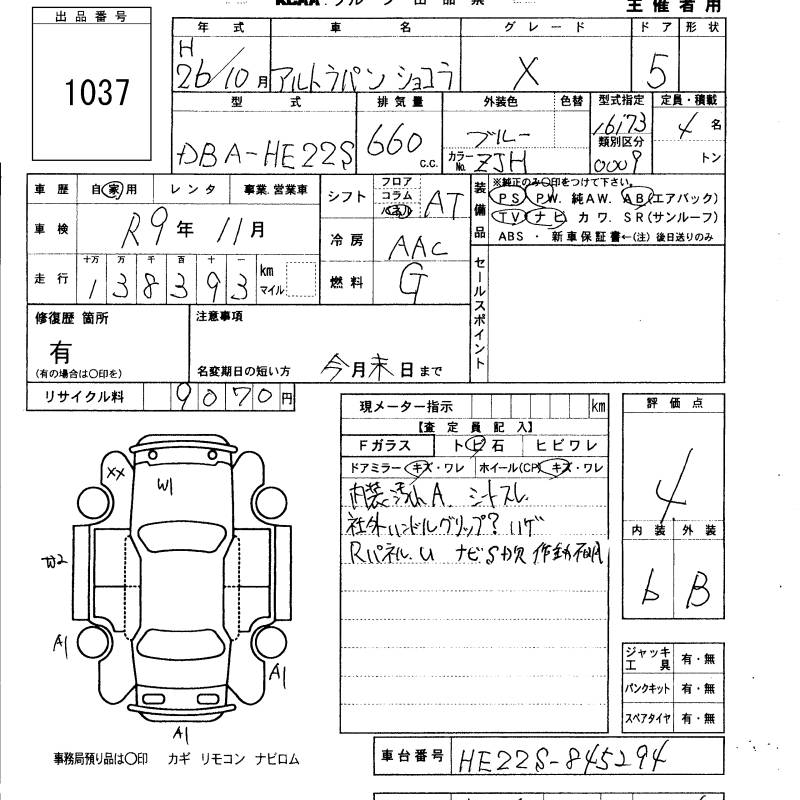 主催者用
出品番号
1037
年式 車名 グレード ドア 形状
H
26/10月 アルトラパン ショコラ X 5
型式 排気量 外装色 色替 型式指定 定員・積載
DBA-HE22S 660 c.c. ブルー 16173 4名
カラーNo. ZJH 類別区分 0009 トン
車歴 自家用 レンタ 事業.営業車
車検 R9年 11月
走行 十万 万 千 百 十 一
138393 km マイル
シフト フロア コラム AT
冷房 AAC
燃料 G
装備品 ※純正のみ〇印をつけて下さい。
PS PW. 純AW. AB(エアバック)
TV ナビ カワ. SR(サンルーフ)
ABS ・ 新車保証書←(注) 後日送りのみ
セールスポイント
修復歴 箇所
有
(有の場合は〇印を)
注意事項
名変期日の短い方 今月末日まで
リサイクル料 9070円
現メーター指示 km
【査定員記入】
Fガラス トビ石 ヒビワレ
ドアミラー キズ・ワレ ホイール(CP) キズ・ワレ
内装汚れA. シートスレ
社外ハンドルグリップ? ハゲ
Rパネル U ナビS欠 作動不明
評価点
4
内装 外装
b B
XX
W1
W2
A1
A1
A1
ジャッキ工具 有・無
パンクキット 有・無
スペアタイヤ 有・無
事務局預り品は〇印 カギ リモコン ナビロム
車台番号 HE22S-845294